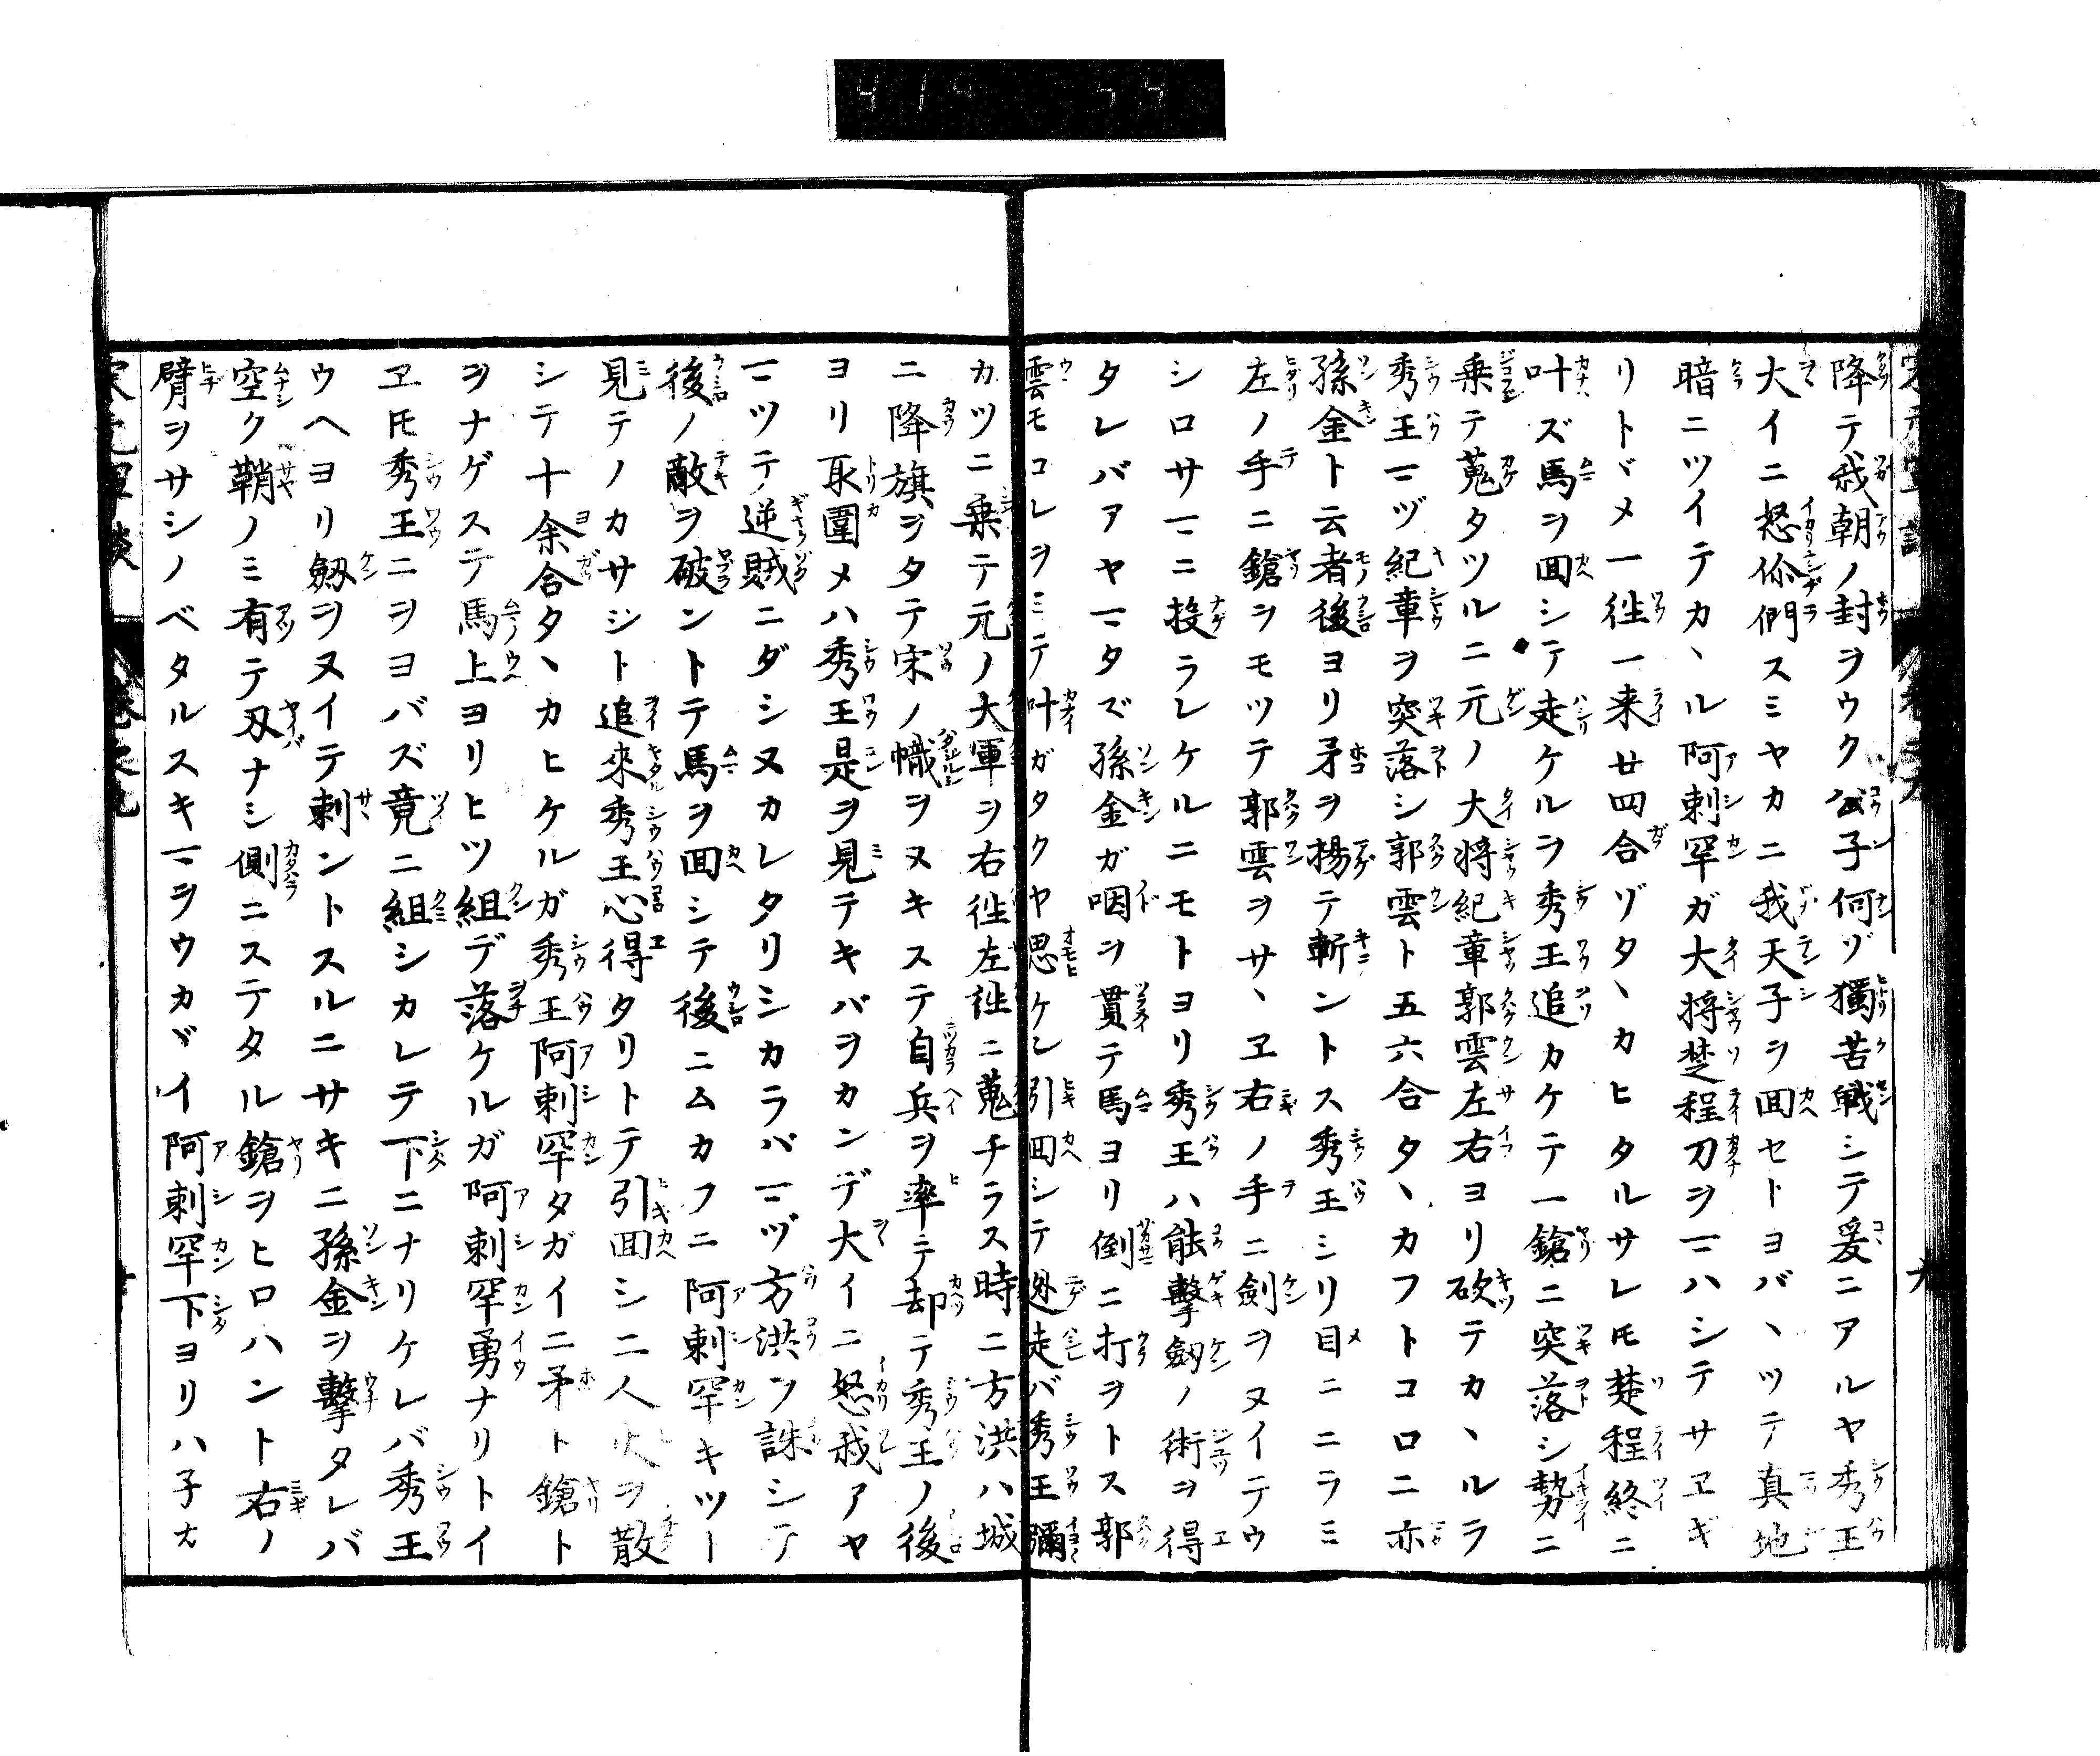 降テ我朝ノ封ヲウク公子何ゾ獨苦戰シテ爰ニアルヤ秀王
大イニ怒你們スミヤカニ我天子ヲ囬セトヨバヽツテ真地
暗ニツイテカヽル阿剌罕ガ大将楚程刀ヲマハシテサヱギ
リトヾメ一徃一来廿四合ヅタヽカヒタルサレ𪜈楚程終ニ
叶ズ馬ヲ囬シテ走ケルヲ秀王追カケテ一鎗ニ突落シ勢ニ
乗テ蒐タツルニ元ノ大将紀章郭雲左右ヨリ砍テカヽルヲ
秀王マヅ紀章ヲ突落シ郭雲ト五六合タヽカフトコロニ亦
孫金ト云者後ヨリ矛ヲ揚テ斬ントス秀王シリ目ニニラミ
左ノ手ニ鎗ヲモツテ郭雲ヲサヽヱ右ノ手ニ劍ヲヌイテウ
シロサマニ投ラレケルニモトヨリ秀王ハ能擊劔ノ術ヲ得
タレバアヤマタズ孫金ガ咽ヲ貫テ馬ヨリ倒ニ打ヲトス郭
雲モコレヲミテ叶ガタクヤ思ケン引囬シテ迯走バ秀王彌
カツニ乗テ元ノ大軍ヲ右徃左徃ニ蒐チラス時ニ方洪ハ城
ニ降旗ヲタテ宋ノ幟ヲヌキステ自兵ヲ率テ却テ秀王ノ後
ヨリ取圍メハ秀王是ヲ見テキバヲカンデ大イニ怒我アヤ
マツテ逆賊ニダシヌカレタリシカラバマヅ方洪ヲ誅シテ
後ノ敵ヲ破ントテ馬ヲ囬シテ後ニムカフニ阿剌罕キツト
見テノカサシト追來秀王心得タリトテ引囬シ二人火ヲ散
シテ十余合タヽカヒケルガ秀王阿剌罕タガイニ矛ト鎗ト
ヲナゲステ馬上ヨリヒツ組デ落ケルガ阿剌罕勇ナリトイ
ヱ𪜈秀王ニヲヨバズ竟ニ組シカレテ下ニナリケレバ秀王
ウヘヨリ劔ヲヌイテ刺ントスルニサキニ孫金ヲ擊タレバ
空ク鞘ノミ有テ刃ナシ側ニステタル鎗ヲヒロハント右ノ
臂ヲサシノベタルスキマヲウカヾイ阿剌罕下ヨリハ子ヲ